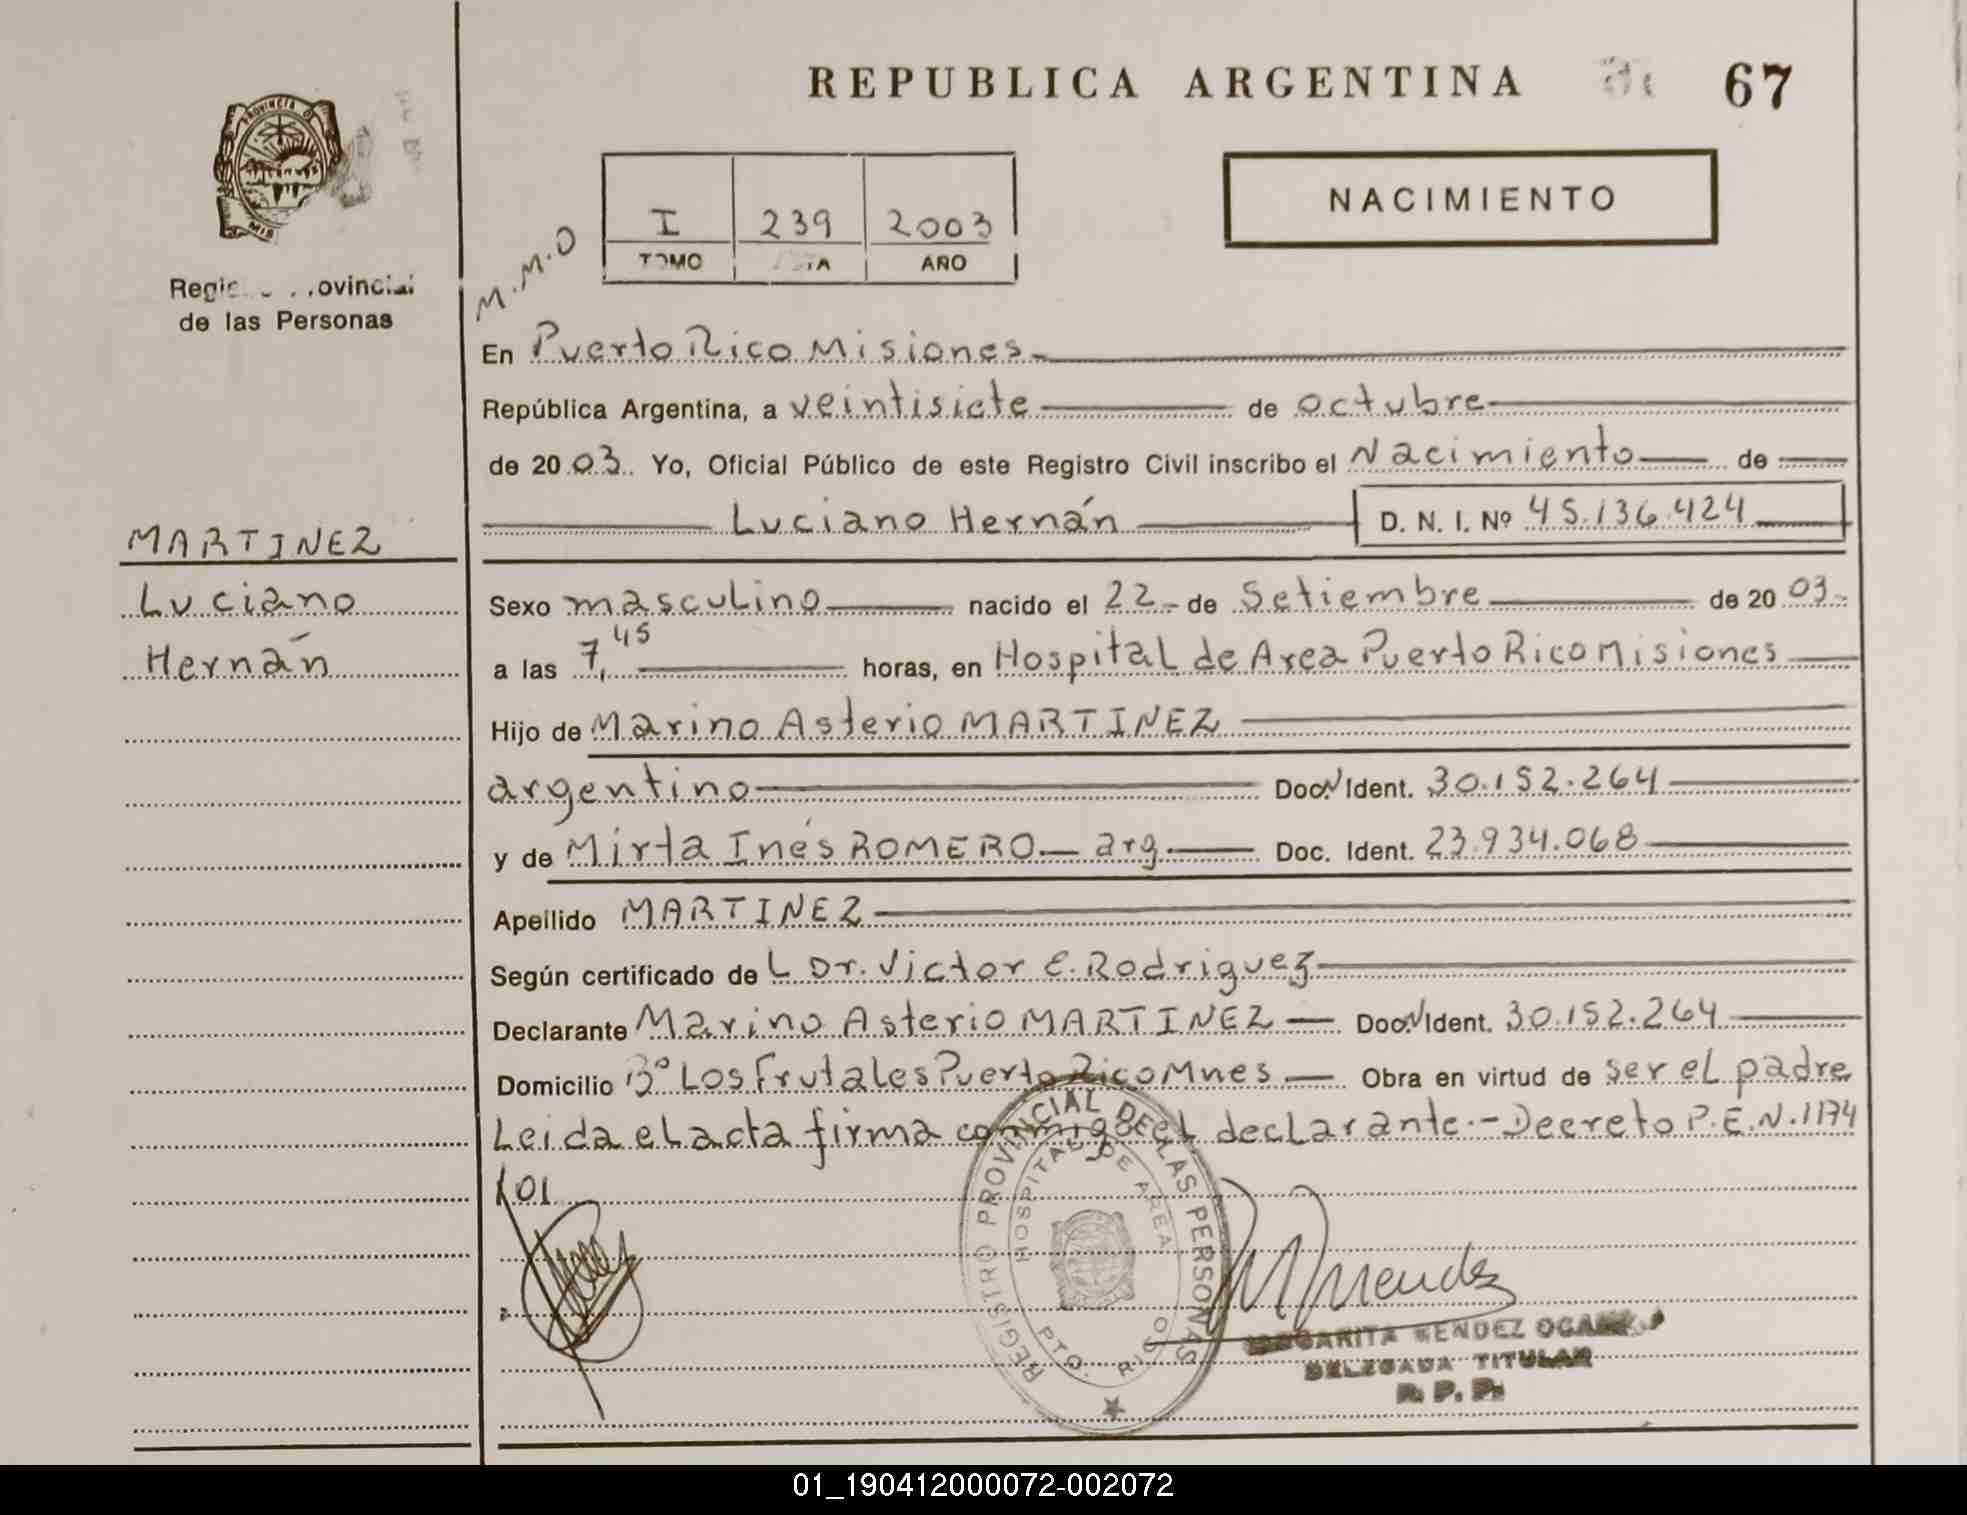 REPUBLICA ARGENTINA 67
PROVINCIA
MIS
de las Personas
NACIMIENTO
M.M.O
I 239 2003
TOMO AÑO
En Puerto Rico Misiones
República Argentina, a veintisiete de octubre
de 2003. Yo, Oficial Público de este Registro Civil inscribo el Nacimiento de
Luciano Hernán D. N. I. Nº 45.136.424
MARTINEZ
Luciano
Hernán
Sexo masculino nacido el 22 de Setiembre de 2003
a las 7,45 horas, en Hospital de Area Puerto Rico Misiones
Hijo de Marino Asterio MARTINEZ
argentino Doc.N Ident. 30.152.264
y de Mirta Inés ROMERO arg. Doc. Ident. 23.934.068
Apellido MARTINEZ
Según certificado de L Dr. Victor E. Rodriguez
Declarante Marino Asterio MARTINEZ Doc.N Ident. 30.152.264
Domicilio Bº Los Frutales Puerto Rico Mnes Obra en virtud de ser el padre
Leida el acta firma conmigo el declarante.- Decreto P.E.N. 1174
/01
REGISTRO PROVINCIAL DE LAS PERSONAS
HOSPITAL DE AREA
PTO. RICO
MMendez
MARGARITA MENDEZ
DELEGADA TITULAR
R. P. P.
01_190412000072-002072